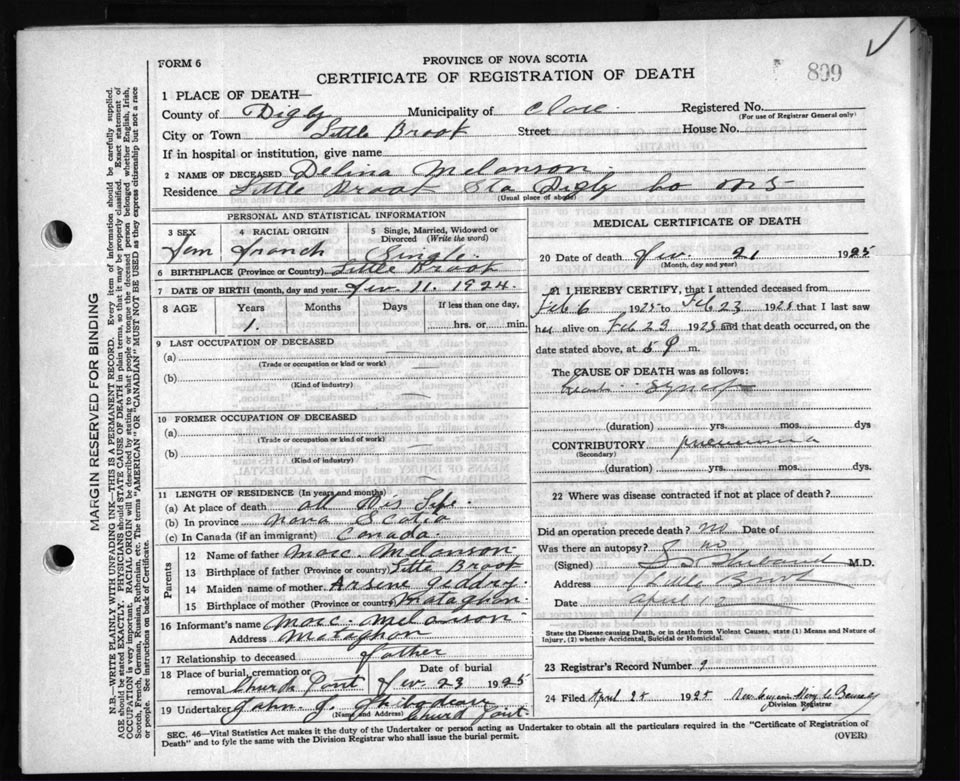 FORM 6
PROVINCE OF NOVA SCOTIA
CERTIFICATE OF REGISTRATION OF DEATH
899
1 PLACE OF DEATH—
County of Digby Municipality of Clare. Registered No.
(For use of Registrar General only)
City or Town Little Brook Street House No.
If in hospital or institution, give name
2 NAME OF DECEASED Delina Melanson.
Residence Little Brook Sta Digby Co N S
(Usual place of abode)
PERSONAL AND STATISTICAL INFORMATION
3 SEX 4 RACIAL ORIGIN 5 Single, Married, Widowed or
Divorced (Write the word)
Fem French Single.
6 BIRTHPLACE (Province or Country) Little Brook
7 DATE OF BIRTH (month, day and year) Fev. 11. 1924.
8 AGE Years Months Days If less than one day,
1. hrs. or min.
9 LAST OCCUPATION OF DECEASED
(a)
(Trade or occupation or kind of work)
(b)
(Kind of industry)
10 FORMER OCCUPATION OF DECEASED
(a)
(Trade or occupation or kind of work)
(b)
(Kind of industry)
11 LENGTH OF RESIDENCE (In years and months)
(a) At place of death all His Life.
(b) In province Nova Scotia
(c) In Canada (if an immigrant) Canada.
Parents
12 Name of father Marc. Melanson.
13 Birthplace of father (Province or country) Little Brook
14 Maiden name of mother Arsene
15 Birthplace of mother (Province or country)
16 Informant's name Marc. Melanson
Address
17 Relationship to deceased father
18 Place of burial, cremation or Date of burial
removal Church Point Fev. 23 1925
19 Undertaker John. J. Thibodeau
(Name and Address) Church Point.
MEDICAL CERTIFICATE OF DEATH
20 Date of death Fev. 21 1925
(Month, day and year)
21 I HEREBY CERTIFY, that I attended deceased from
Feb 6 1925 to Feb 23 1925 that I last saw
her alive on Feb 23 1925 and that death occurred, on the
date stated above, at 5 P m.
The CAUSE OF DEATH was as follows:
(duration) yrs. mos. dys
CONTRIBUTORY pneumonia
(Secondary)
(duration) yrs. mos. dys.
22 Where was disease contracted if not at place of death?
Did an operation precede death? no Date of
Was there an autopsy? no
(Signed) M.D.
Address Little Brook
Date April 12
State the Disease causing Death, or in death from Violent Causes, state (1) Means and Nature of
Injury, (2) whether Accidental, Suicidal or Homicidal.
23 Registrar's Record Number 9
24 Filed April 24 1925
Division Registrar
SEC. 46—Vital Statistics Act makes it the duty of the Undertaker or person acting as Undertaker to obtain all the particulars required in the "Certificate of Registration of
Death" and to fyle the same with the Division Registrar who shall issue the burial permit.
(OVER)
MARGIN RESERVED FOR BINDING
N.B.—WRITE PLAINLY WITH UNFADING INK—THIS IS A PERMANENT RECORD. Every item of information should be carefully supplied.
AGE should be stated EXACTLY. PHYSICIANS should STATE CAUSE OF DEATH in plain terms, so that it may be properly classified. Exact statement of
OCCUPATION is very important. RACIAL ORIGIN will be described by stating to what people or tongue the deceased person belonged whether English, Irish,
Scotch, French, German, Russian, Ruthenian, etc. The terms "AMERICAN" OR "CANADIAN" MUST NOT BE USED as they express citizenship but not a race
or people. See instructions on back of Certificate.